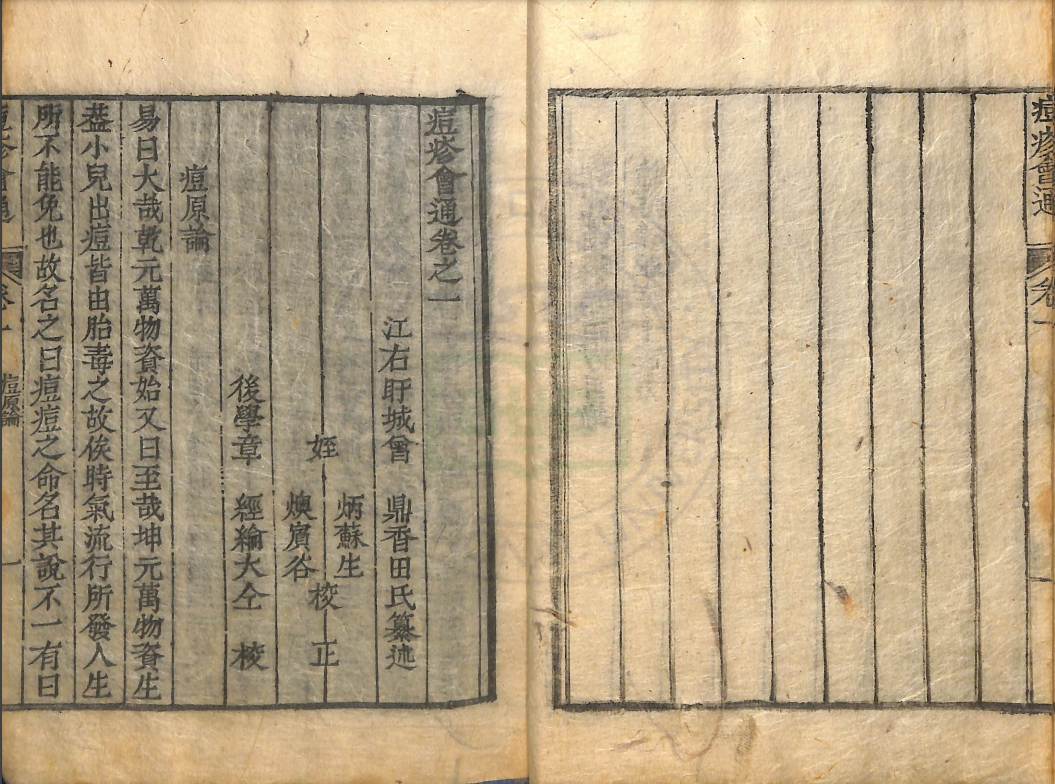 痘疹會通 卷一
痘疹會通卷之一
江右盱城曾 鼎香田氏纂述
姪 炳蘇生 校 正
燠賓谷
後學章 經綸大仝 校
痘原論
易曰大哉乾元萬物資始又曰至哉坤元萬物資生
葢小兒出痘皆由胎毒之故俟時氣流行所發人生
所不能免也故名之曰痘痘之命名其說不一有曰
痘疹會通 卷一 痘原論 一